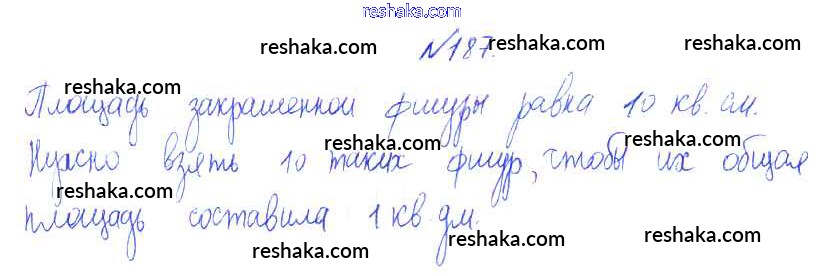 reshaka.com
reshaka.com reshaka.com
№187.
reshaka.com reshaka.com
Площадь закрашенной фигуры равна 10 кв. см.
reshaka.com reshaka.com
Нужно взять 10 таких фигур, чтобы их общая
reshaka.com reshaka.com
площадь составила 1 кв. дм.
reshaka.com reshaka.com